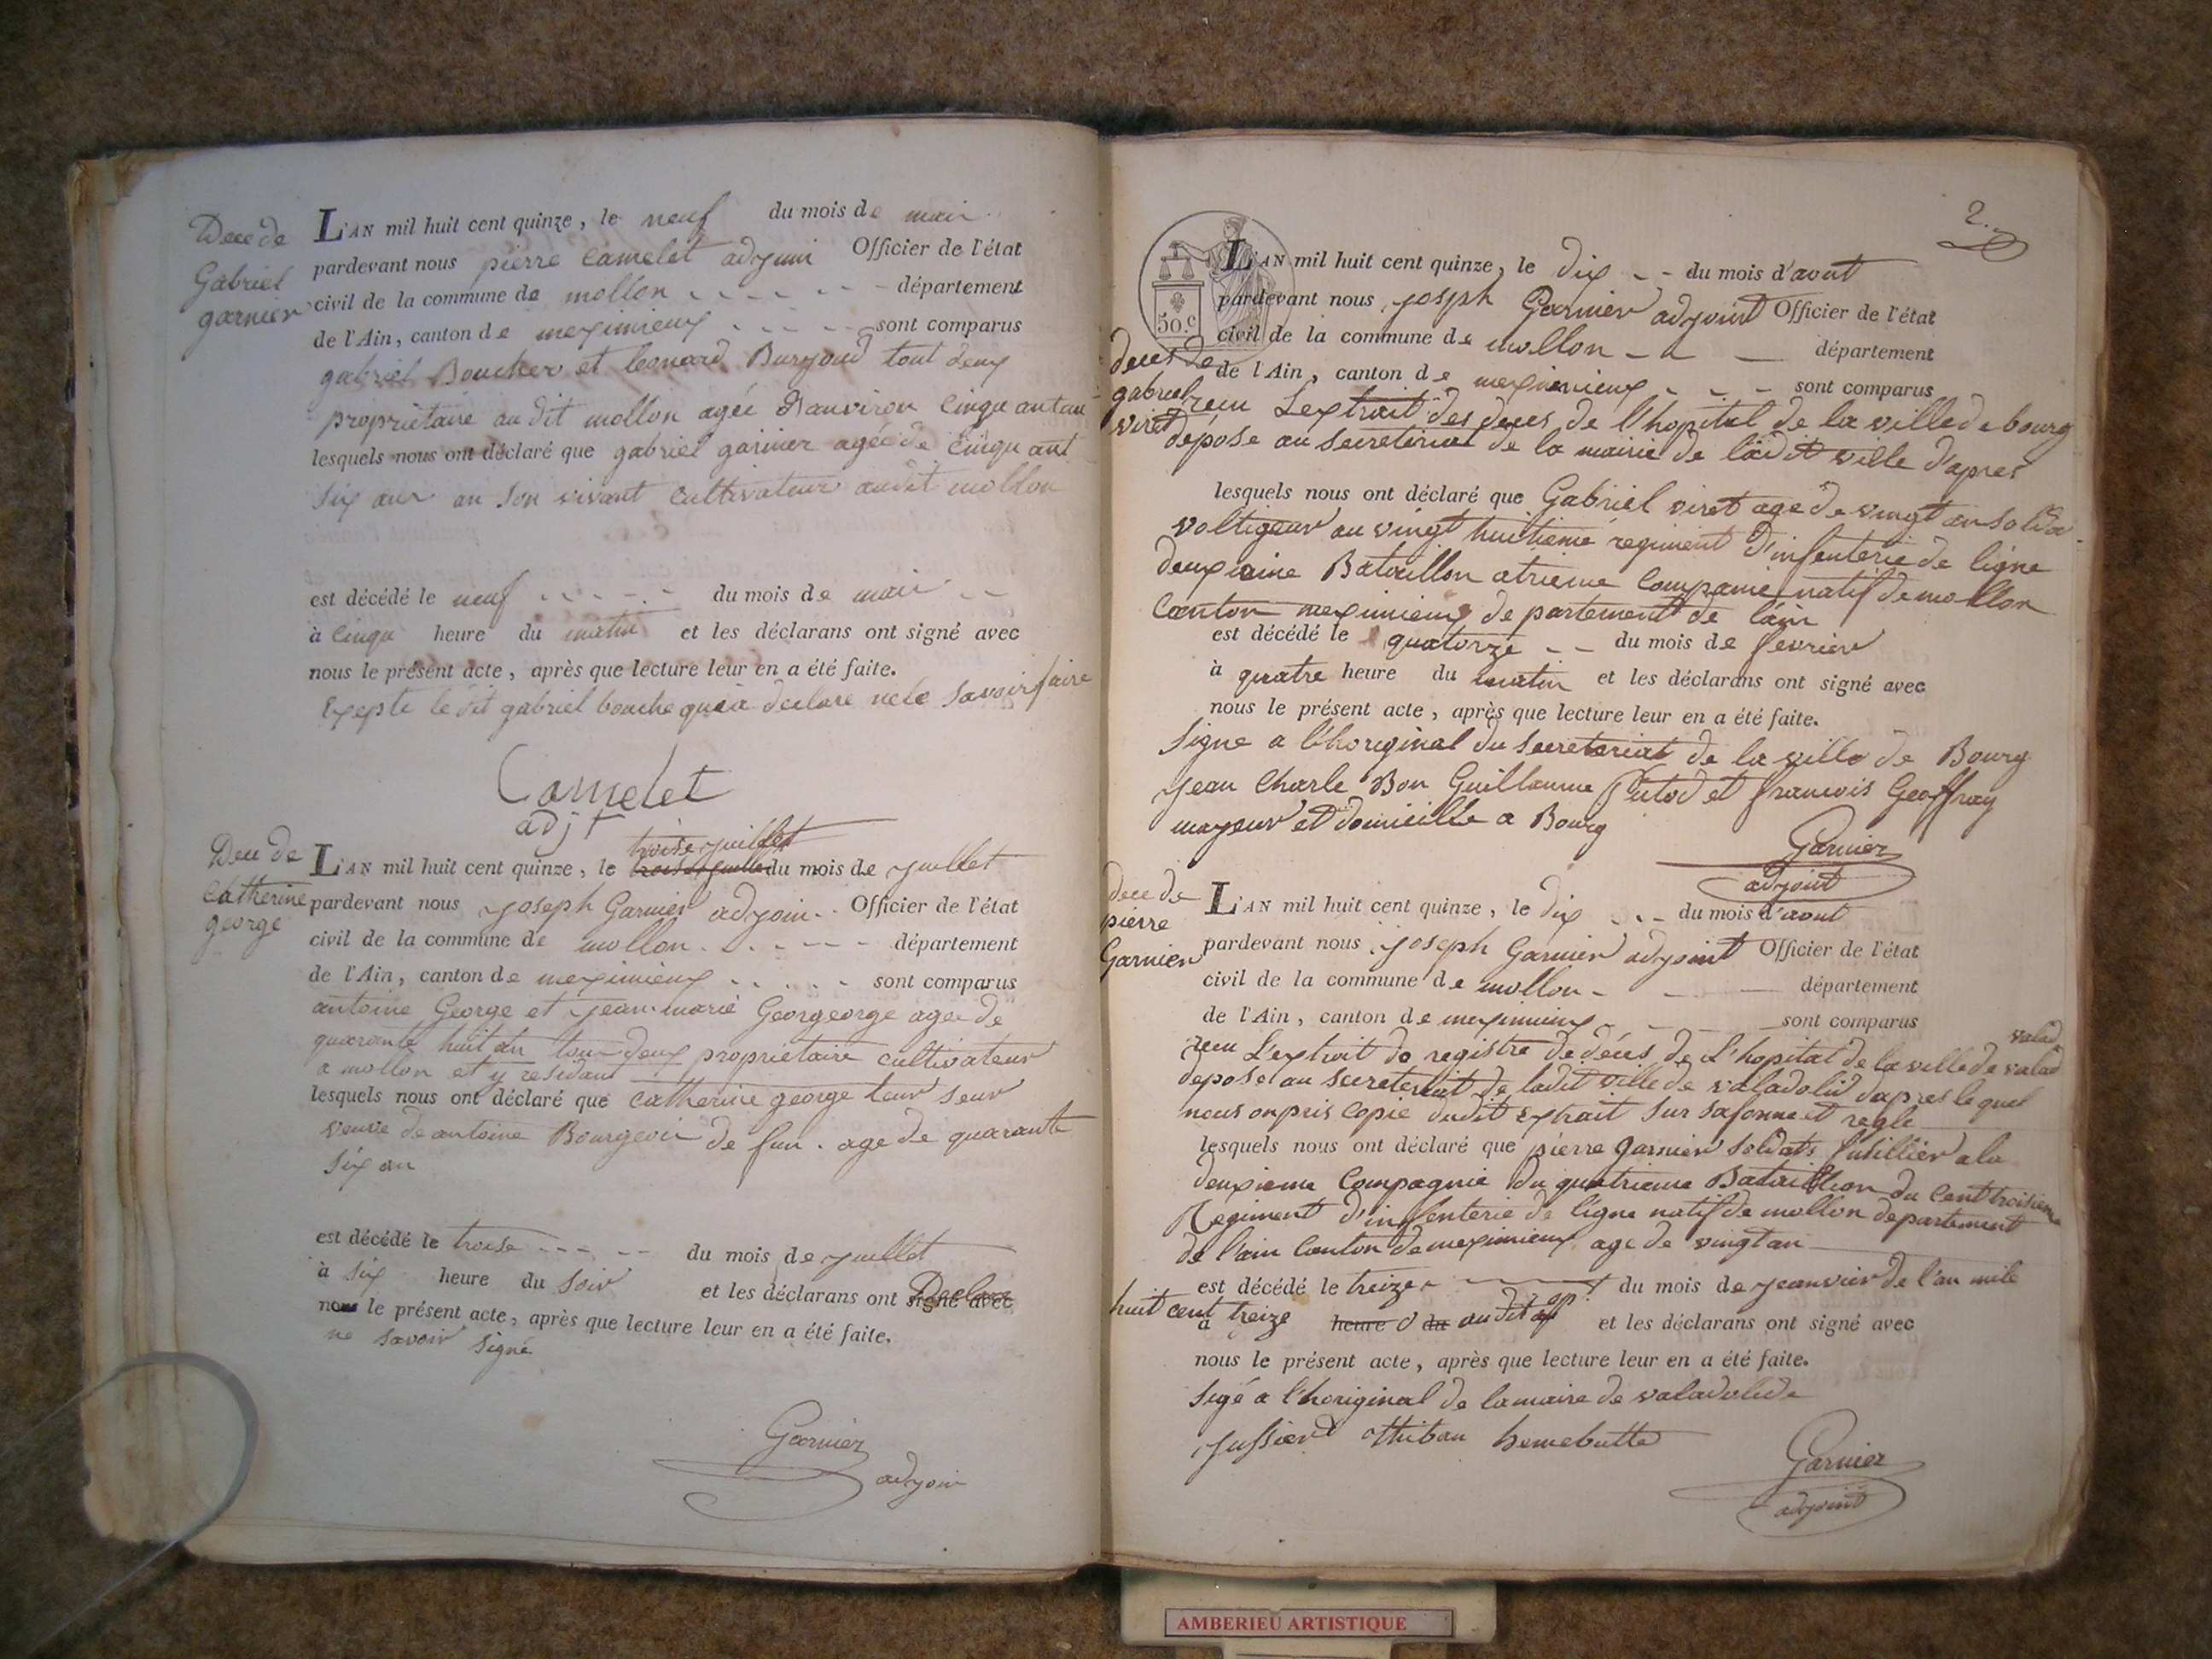 Dece de
Gabriel
garnier
L'AN mil huit cent quinze, le neuf du mois de mais
pardevant nous pierre Camelet adjoin Officier de l'état
civil de la commune de mollon département
de l'Ain, canton de meximieux sont comparus
gabriel Boucher et leonard Buryoud tout deux
propriétaire au dit mollon agée d'anviron cinquantan
lesquels nous ont déclaré que gabriel garnier agée de cinquant
six ans an son vivant cultivateur audit mollon
est décédé le neuf du mois de mais
à cinqu heure du matin et les déclarans ont signé avec
nous le présent acte, après que lecture leur en a été faite.
Exepte le dit gabriel bouche qui a declare nele savoir faire
Camelet
adjt
Dece de
Catherine
george
L'AN mil huit cent quinze, le troise juillet du mois de juillet
pardevant nous joseph Garnier adjoin Officier de l'état
civil de la commune de mollon département
de l'Ain, canton de meximieux sont comparus
antoine George et jean marie Georgeorge agee de
quarante huit an tou deux propriétaire cultivateur
a mollon et y residant
lesquels nous ont déclaré que catherine george leur seur
veuve de antoine Bourgeois de fun. age de quarante
six an
est décédé le troise du mois de juillet
à six heure du soir et les déclarans ont signé avec Declare
nous le présent acte, après que lecture leur en a été faite.
ne savoir signé
Garnier
adjoin
2.
50.c
deces de
gabriel
viret
L'AN mil huit cent quinze, le dix du mois d'aout
pardevant nous joseph Garnier adjoint Officier de l'état
civil de la commune de mollon département
de l'Ain, canton de meximieux sont comparus
recu Lextrait des deces de l'hopital de la ville de bourg
depose au secreteriat de la mairie de ladit ville d'apres
lesquels nous ont déclaré que Gabriel viret age de vingt an solda
voltigeur au vingt huitieme regiment d'infenterie de ligne
deuxieime Batouillon atrieme Compamie natif de mollon
Canton meximieux de partement de l'ain
est décédé le quatorze du mois de fevrier
à quatre heure du matin et les déclarans ont signé avec
nous le présent acte, après que lecture leur en a été faite.
signe a l'horiginal du secreteriat de la ville de Bourg
jean Charle Bon Guillaume Putod et francois Geoffray
mayeur et domicille a Bourg
Garnier
adjoint
Dece de
pierre
Garnier
L'AN mil huit cent quinze, le dix du mois d'aout
pardevant nous joseph Garnier adjoint Officier de l'état
civil de la commune de mollon département
de l'Ain, canton de meximieux sont comparus
valad
recu L'extrait do registre de déces de L'hopital de la ville de valad
depose au secreteriat de ladit ville de valadolid dapres le quel
nous onpris copie dudit extrait sur safonne et regle
lesquels nous ont déclaré que pierre garnier soldats fusillier ala
deuxieme Compagnie du quatrieme Bataillion du Cent troisieme
Regiment d'infenterie de ligne natif de mollon departement
de l'ain Canton de meximieux age de vingt an
est décédé le treize du mois de jeanvier de l'an mile
huit cent treize
à heure du au dit op et les déclarans ont signé avec
nous le présent acte, après que lecture leur en a été faite.
sigé a l'horiginal de lamaire de valadolide
jussier othiban hemebutte
Garnier
adjoint
AMBERIEU ARTISTIQUE